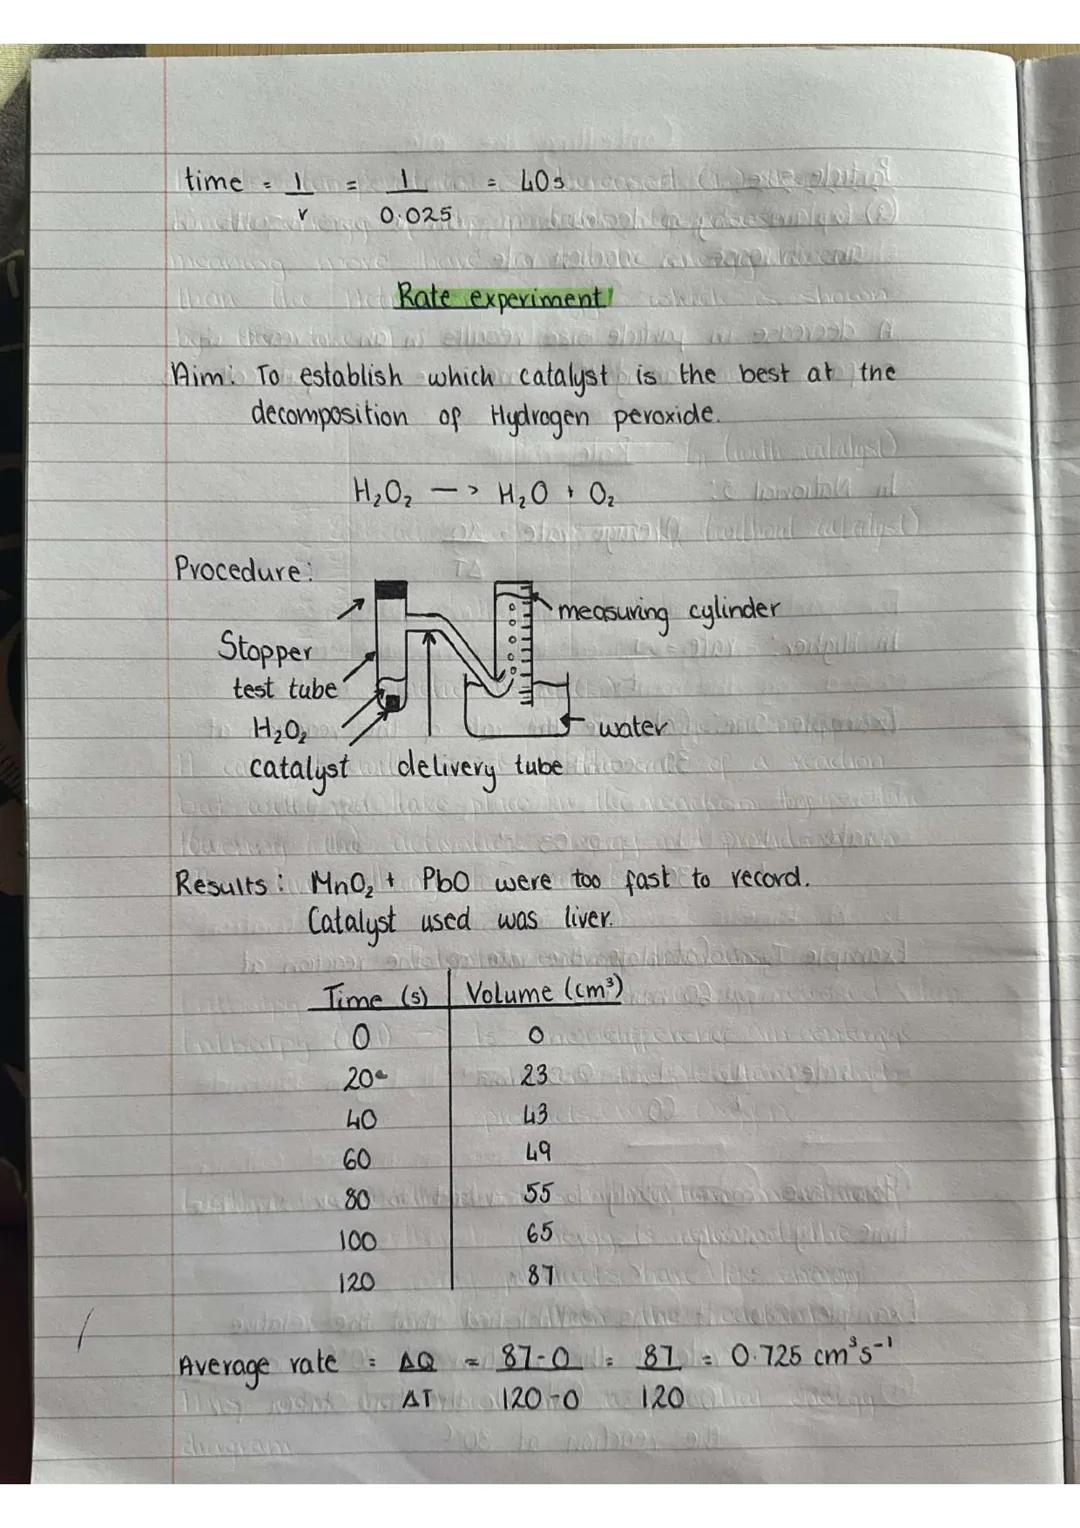 time = 1/r = 1/0.025 = 40s
Rate experiment
Aim: To establish which catalyst is the best at the
decomposition of Hydrogen peroxide.
H₂O₂ --> H₂O + O₂
Procedure:
measuring cylinder
Stopper
test tube
H₂O₂
water
catalyst delivery tube
Results: MnO₂ + PbO were too fast to record.
Catalyst used was liver.
Time (s) Volume (cm³)
0 0
20 23
40 43
60 49
80 55
100 65
120 87
Average rate = ΔQ/ΔT = 87-0/120-0 = 87/120 = 0.725 cm³s⁻¹